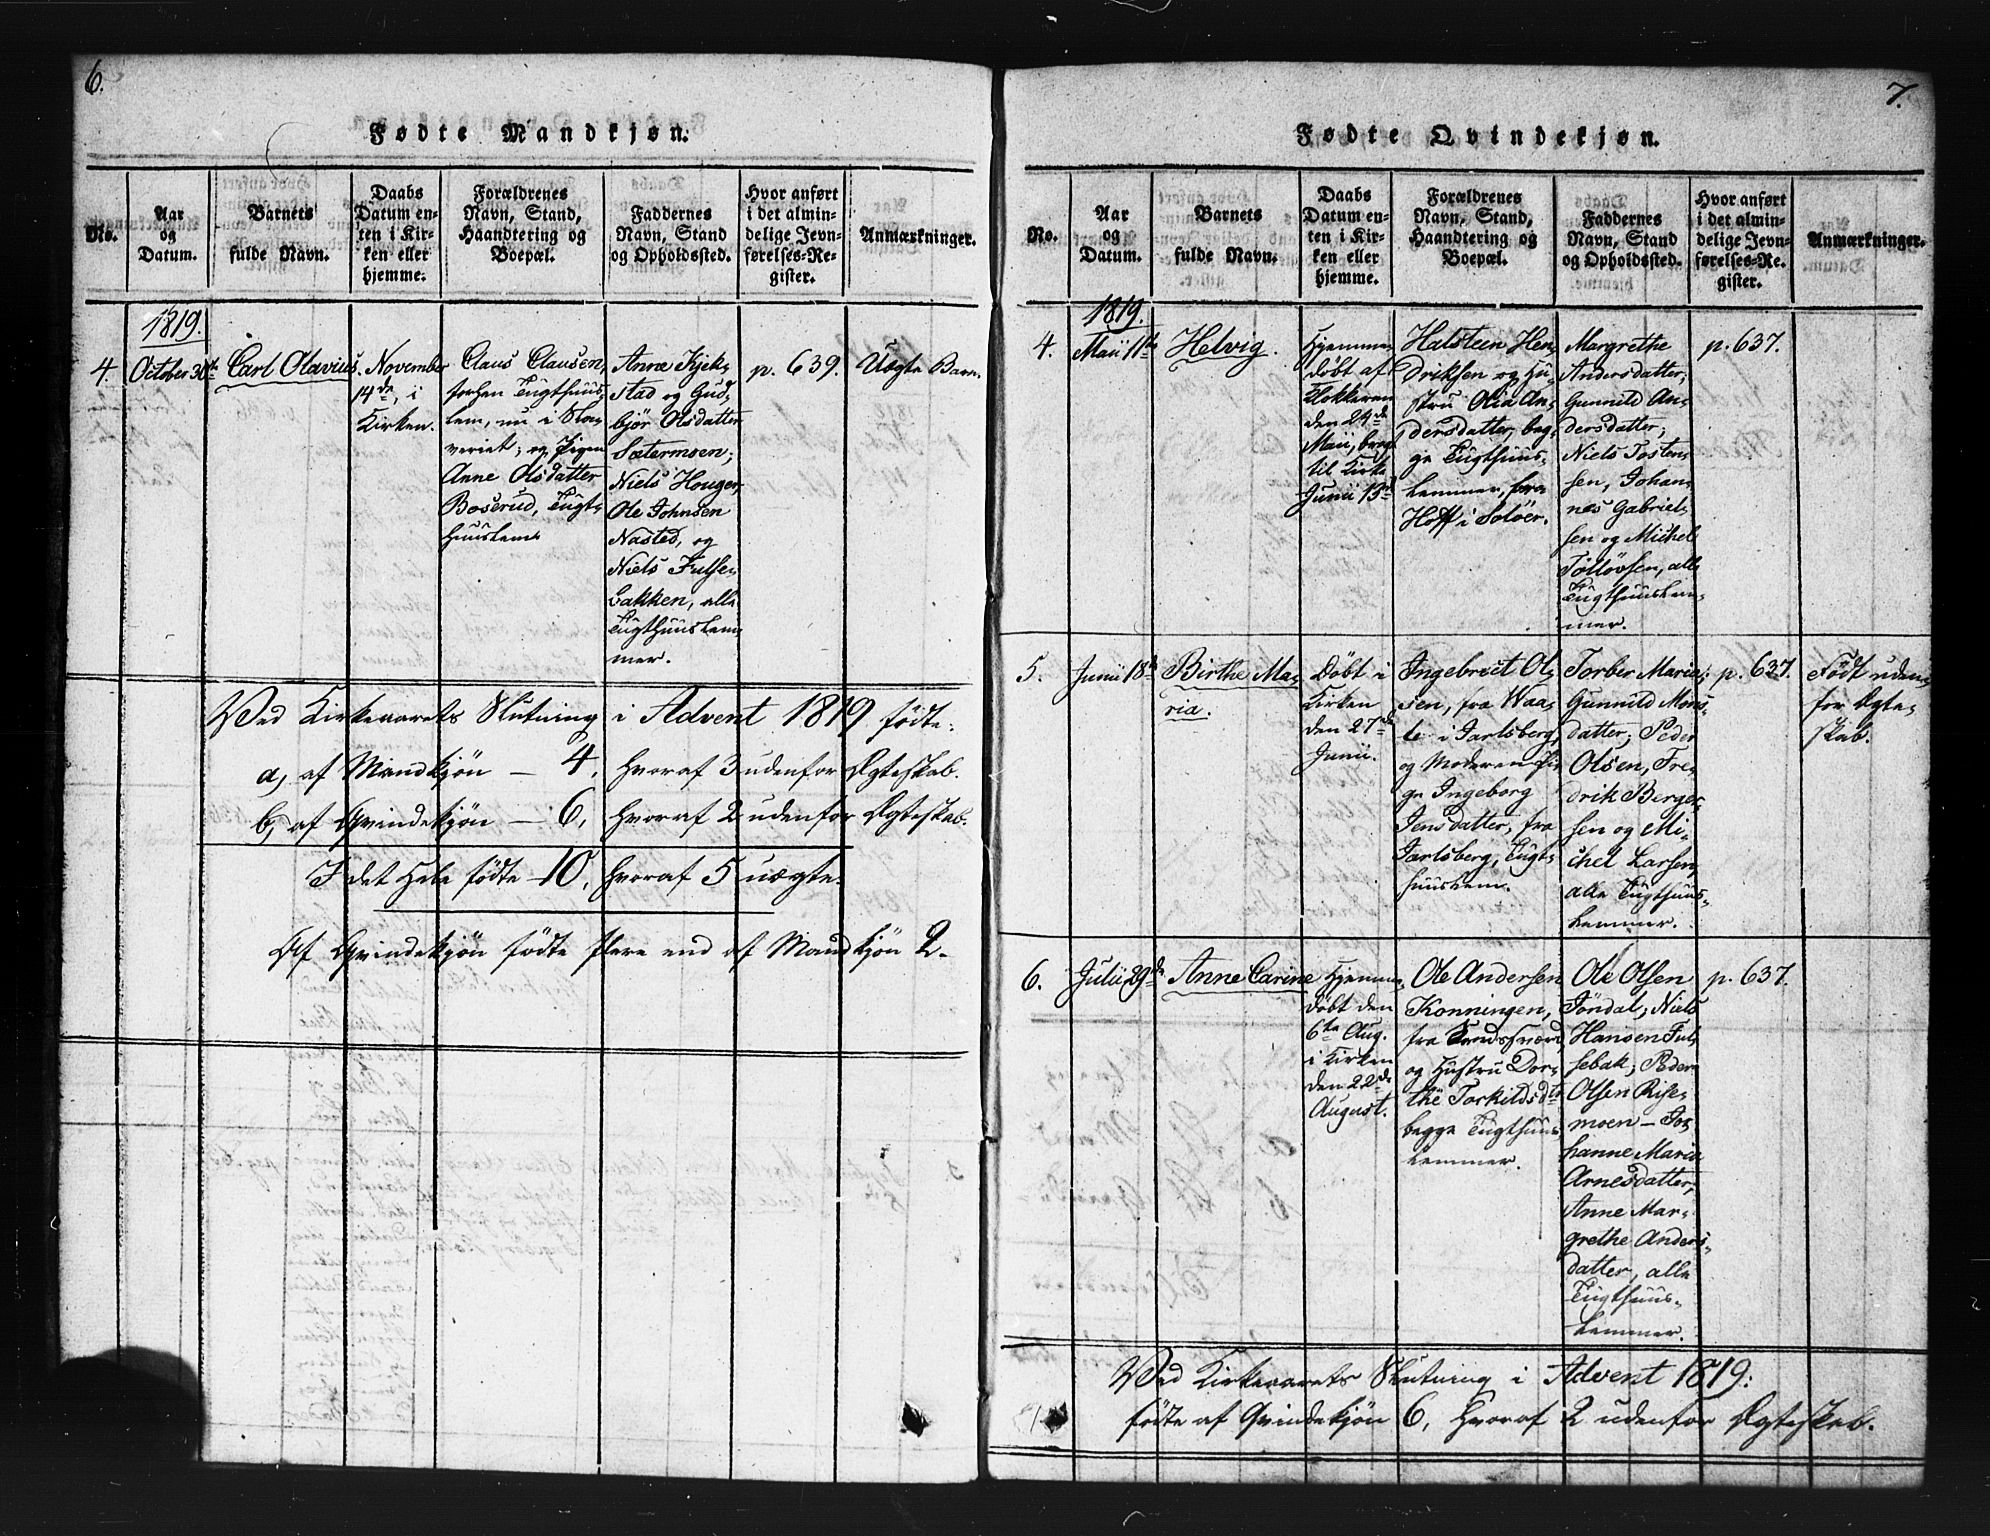 6.
Fødte Mandkjøn.
No.
Aar
og
Datum.
Barnets
fulde Navn.
Daabs
Datum en-
ten i Kir-
ken eller
hjemme.
Forældrenes
Navn, Stand,
Haandtering og
Boepæl.
Faddernes
Navn, Stand
og Opholdssted.
Hvor anført
i det almin-
delige Jevn-
førelses-Re-
gister.
Anmærkninger.
1819.
4.
October 30te
Carl Olavius.
November
14de, i
Kirken.
Claus Clausen,
forhen Tugthuus-
lem, nu i Sla-
veriet; og Pigen
Anne Olsdatter
Boserud, Tugt-
huuslem
Anne Kjek-
stad og Gud-
bjør Olsdatter
Sætermoen;
Niels Houger,
Ole Johnsen
Nasted, og
Niels Fulse-
bakken, alle
Tugthuuslem-
mer.
p. 639.
Uægte Barn.
Ved Kirkeaarets Slutning i Advent 1819 fødte:
a, af Mandkjøn — 4, hvoraf 3 udenfor Ægteskab.
b, af Qvindekjøn — 6, hvoraf 2 udenfor Ægteskab.
I det Hele fødte — 10, hvoraf 5 uægte.
Af Qvindekjøn fødte flere end af Mandkjøn 2.
7.
Fødte Qvindekjøn.
No.
Aar
og
Datum.
Barnets
fulde Navn.
Daabs
Datum en-
ten i Kir-
ken eller
hjemme.
Forældrenes
Navn, Stand,
Haandtering og
Boepæl.
Faddernes
Navn, Stand
og Opholdssted.
Hvor anført
i det almin-
delige Jevn-
førelses-Re-
gister.
Anmærkninger.
1819.
4.
Maii 11te
Helvig.
Hjemme-
døbt af
Klokkeren
den 24de
Maii, bragt
til Kirke
Junii 13de
Halsteen Hen-
driksen og Hu-
stru Olia An-
dersdatter, beg-
ge Tugthuus-
lemmer, fra
Hoff i Soløer.
Margrethe
Andersdatter,
Gunnild An-
dersdatter;
Niels Tosten-
sen, Johan-
nes Gabriel-
sen og Michel
Tolløvsen, alle
Tugthuuslem-
mer.
p. 637.
5.
Junii 18de
Birthe Ma-
ria.
Døbt i
Kirken
den 27de
Junii.
Ingebrect Ol-
sen, fra Waa-
le i Jarlsberg,
og Moderen Pi-
ge Ingeborg
Jensdatter, fra
Jarlsberg, Tugt-
huuslem.
Torber Maria;
Gunnild Mons-
datter; Peder
Olsen, Fre-
drik Berger-
sen og Mi-
chel Larsen,
alle Tugthuus-
lemmer.
p. 637.
Født uden-
for Ægte-
skab.
6.
Julii 29de
Anne Carine
Hjemme-
døbt den
6te Aug.
i Kirken
den 22de
August.
Ole Andersen
Konningen,
fra Sandsværd,
og Hustru Dor-
the Torkildsdtr
begge Tugthuus-
lemmer.
Ole Olsen
Jøndal; Niels
Hansen Ful-
sebak; Peder
Olsen Rise-
moen — Jo-
hanne Maria
Arnesdatter,
Anne Mar-
grethe Anders-
datter, alle
Tugthuus-
lemmer.
p. 637.
Ved Kirkeaarets Slutning i Advent 1819:
fødte af Qvindekjøn 6, hvoraf 2 udenfor Ægteskab.